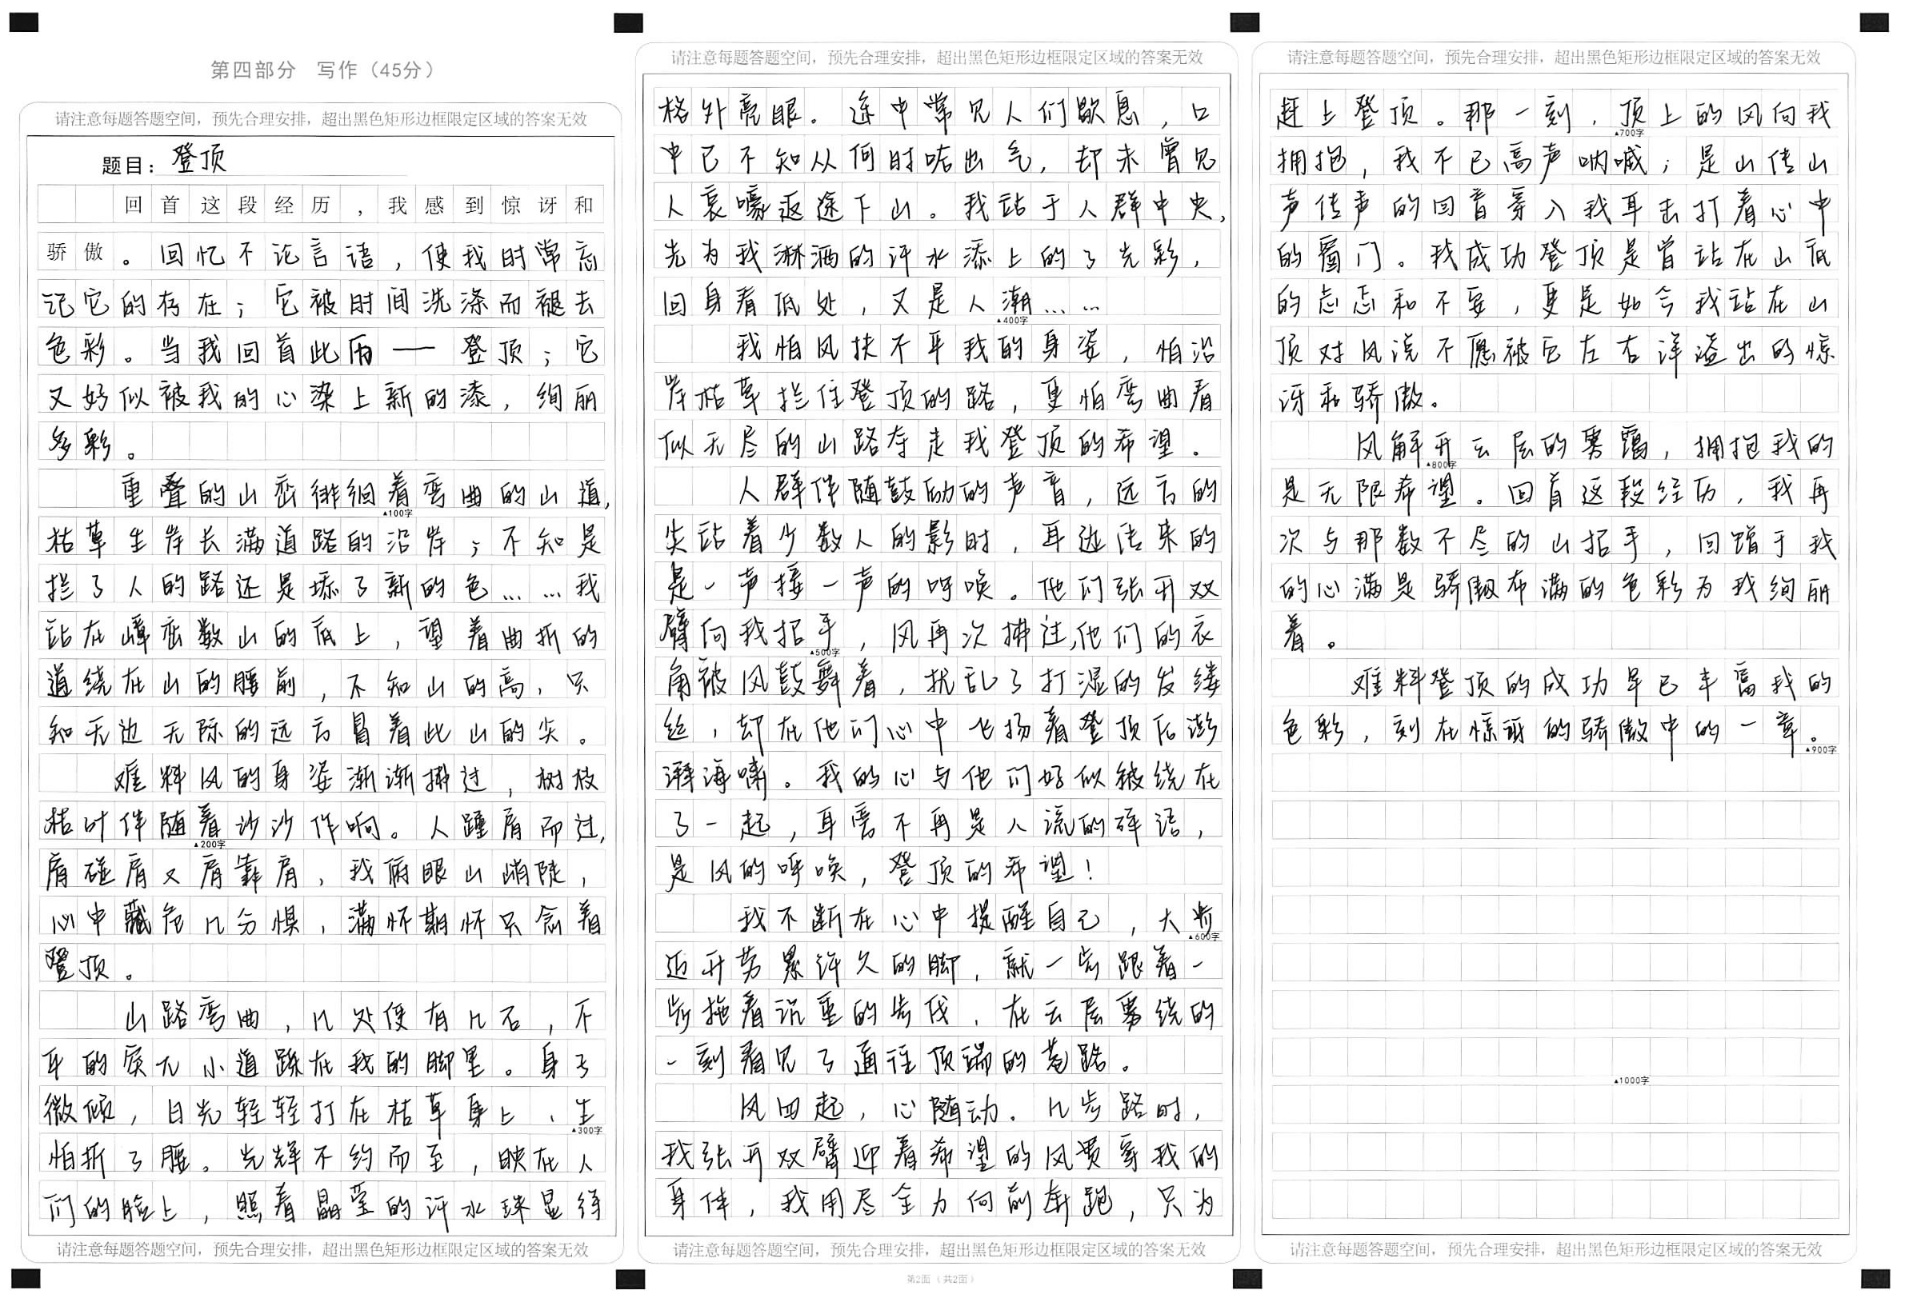 第四部分 写作（45分）
请注意每题答题空间，预先合理安排，超出黑色矩形边框限定区域的答案无效
题目：登顶
回首这段经历，我感到惊讶和
骄傲。回忆不论言语，使我时常忘
记它的存在；它被时间洗涤而褪去
色彩。当我回首此历——登顶；它
又好似被我的心染上新的漆，绚丽
多彩。
重叠的山峦徘徊着弯曲的山道，
▲100字
枯草生岸长满道路的沿岸；不知是
拦了人的路还是添了新的色……我
站在嶂峦数山的底上，望着曲折的
道绕在山的腰前，不知山的高，只
知无边无际的远方冒着此山的尖。
难料风的身姿渐渐拂过，树枝
枯叶伴随着沙沙作响。人踵肩而过，
▲200字
肩碰肩又肩靠肩，我俯眼山峭陡，
心中藏危几分惧，满怀期怀只念着
登顶。
山路弯曲，几处便有几石，不
平的灰兀小道踩在我的脚里。身子
微倾，日光轻轻打在枯草身上，生
▲300字
怕折了腰。光辉不约而至，映在人
们的脸上，照着晶莹的汗水珠显得
请注意每题答题空间，预先合理安排，超出黑色矩形边框限定区域的答案无效
请注意每题答题空间，预先合理安排，超出黑色矩形边框限定区域的答案无效
格外亮眼。途中常见人们歇息，口
中已不知从何时喘出气，却未曾见
人哀嚎返途下山。我站于人群中央，
光为我淋洒的汗水添上的了光彩，
回身看低处，又是人潮……
▲400字
我怕风扶不平我的身姿，怕沿
岸枯草拦住登顶的路，更怕弯曲看
似无尽的山路夺走我登顶的希望。
人群伴随鼓励的声音，远方的
尖站着少数人的影时，耳边传来的
是一声接一声的呼唤。他们张开双
臂向我招手，风再次拂过，他们的衣
▲500字
角被风鼓舞着，扰乱了打湿的发缕
丝，却在他们心中飞扬着登顶后澎
湃海啸。我的心与他们好似被绕在
了一起，耳旁不再是人流的碎语，
是风的呼唤，登顶的希望！
我不断在心中提醒自己，大步
▲600字
迈开劳累许久的脚，就一步跟着一
步拖着沉重的步伐，在云层雾绕的
一刻看见了通往顶端的苍路。
风四起，心随动。几步路时，
我张开双臂迎着希望的风贯穿我的
身体，我用尽全力向前奔跑，只为
请注意每题答题空间，预先合理安排，超出黑色矩形边框限定区域的答案无效
第2面（共2面）
请注意每题答题空间，预先合理安排，超出黑色矩形边框限定区域的答案无效
赶上登顶。那一刻，顶上的风向我
▲700字
拥抱，我不已高声呐喊；是山传山
声传声的回音穿入我耳击打着心中
的窗门。我成功登顶是曾站在山底
的忐忑和不安，更是如今我站在山
顶对风说不愿被它左右洋溢出的惊
讶和骄傲。
风解开云层的雾霭，拥抱我的
▲800字
是无限希望。回首这段经历，我再
次与那数不尽的山招手，回蹭于我
的心满是骄傲布满的色彩为我绚丽
着。
难料登顶的成功早已丰富我的
色彩，刻在惊讶的骄傲中的一章。
▲900字
▲1000字
请注意每题答题空间，预先合理安排，超出黑色矩形边框限定区域的答案无效